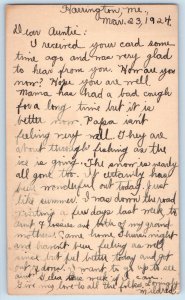 Harrington, Me.,
Mar. 23, 1924.
Dear Auntie:
I received your card some
time ago and was very glad
to hear from you. How are you
now? Hope you are well.
Mama has had a bad cough
for a long time but it is
better now. Papa isn't
feeling very well. They are
about through fishing as the
ice is going. The snow is nearly
all gone too. It certainly has
been wonderful out today. Just
like summer. I was down the road
visiting a few days last week, to
aunt and both of my grand
mothers. Came home Thurs. night
and haven't been feeling as well
since but feel better today and got
out of doors. I want to go to
see as soon as I can.
Give my love to all the folks.